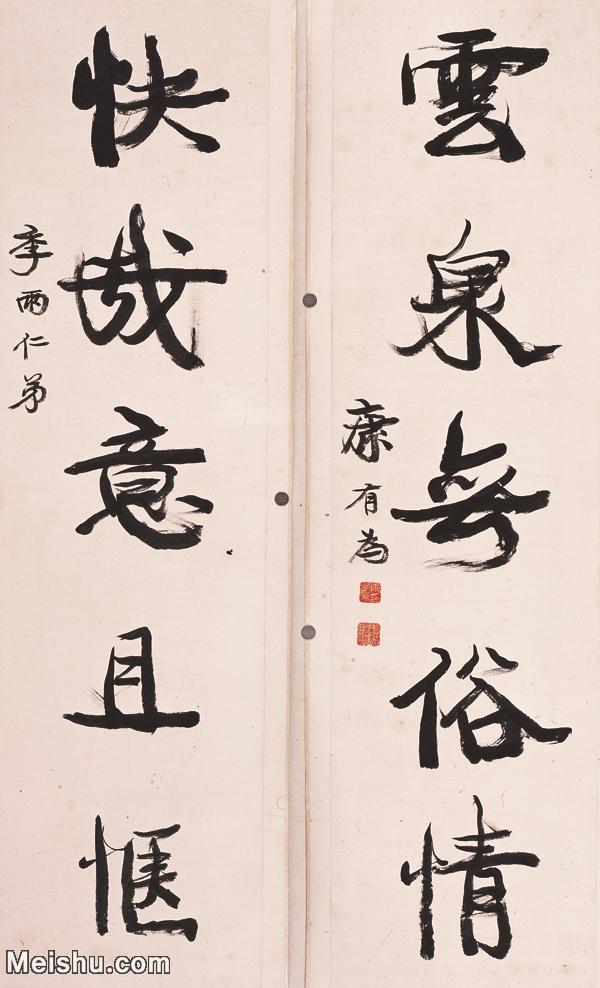 雲泉無俗情
康有為
快哉意且愜
季雨仁弟
Meishu.com